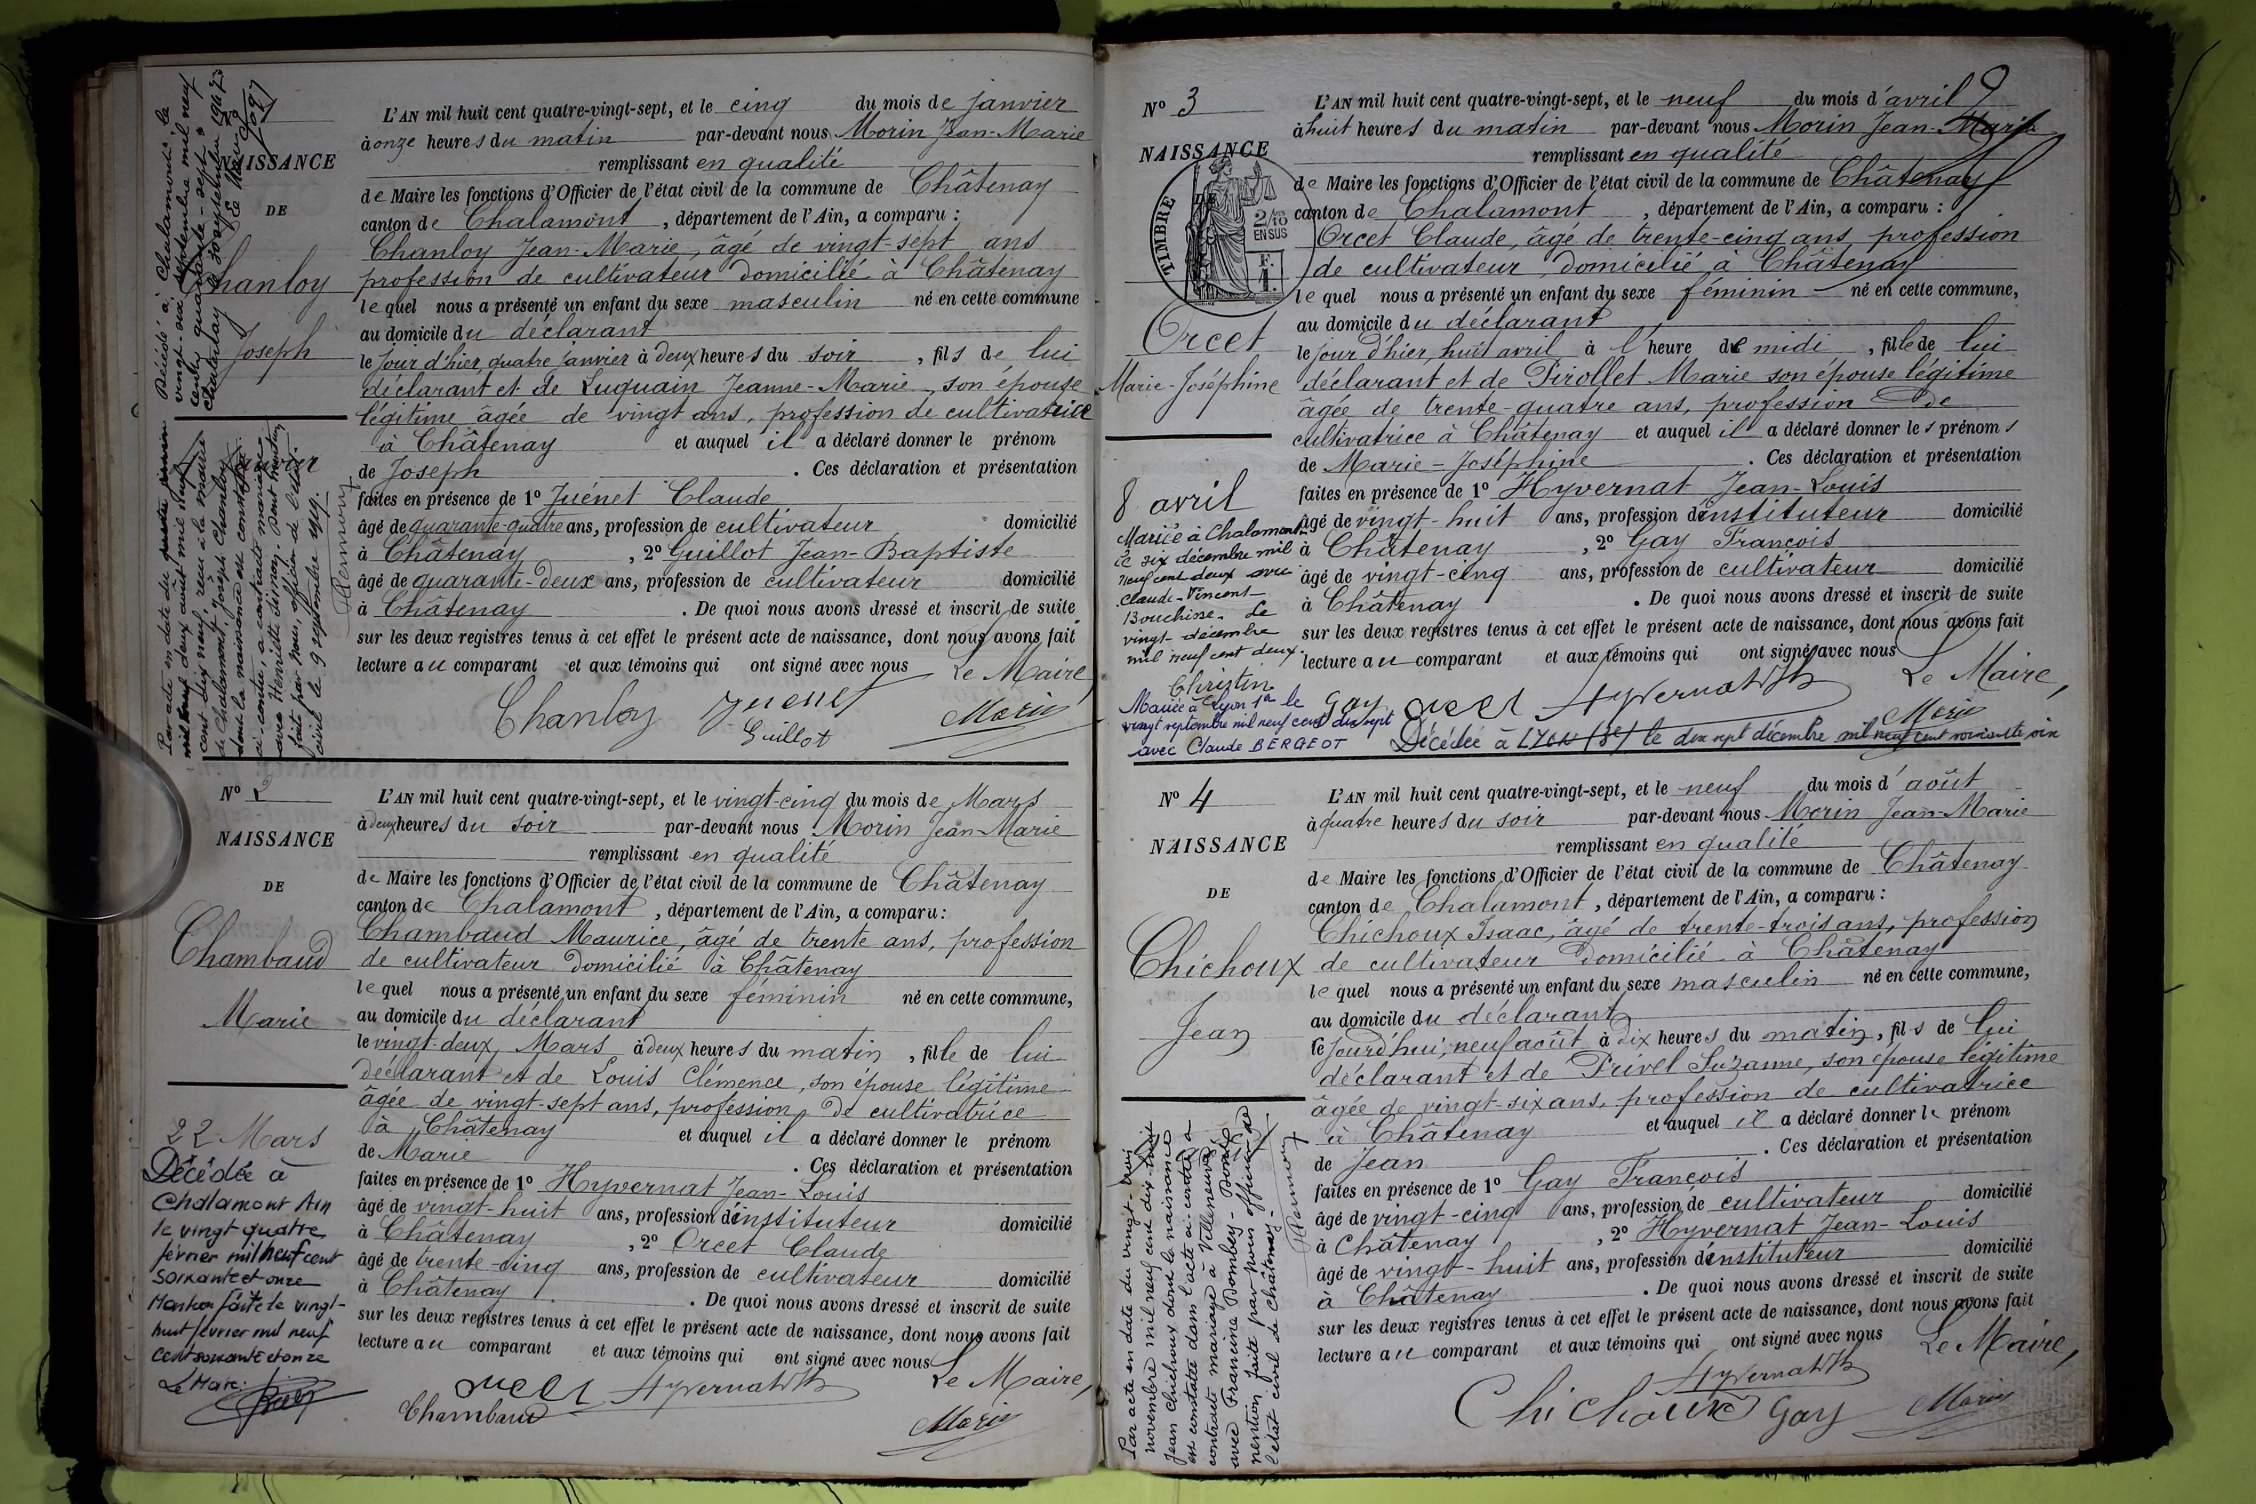 NAISSANCE
DE
Chanloy
Joseph
Décédé à Chalamont le
vingt-six septembre mil neuf
cent quarante-sept
Chatenay le 30 septembre 1947
Le Maire
mil neuf cent deux août mil neuf
cent dix neuf, reçu à la mairie
de Chalamont, Joseph Chanloy
dont la naissance est constatée
ci-contre, a contracté mariage
avec Henriette Dervay. Dont mention
faite par nous, officier de l'état
civil le 9 septembre 1919.
L'AN mil huit cent quatre-vingt-sept, et le cinq du mois de janvier
à onze heures du matin par-devant nous Morin Jean-Marie
remplissant en qualité
de Maire les fonctions d'Officier de l'état civil de la commune de Châtenay
canton de Chalamont, département de l'Ain, a comparu :
Chanloy Jean-Marie, âgé de vingt-sept ans
profession de cultivateur domicilié à Châtenay
lequel nous a présenté un enfant du sexe masculin né en cette commune
au domicile du déclarant
le jour d'hier, quatre janvier à deux heures du soir, fils de lui
déclarant et de Luguain Jeanne-Marie, son épouse
légitime âgée de vingt ans, profession de cultivatrice
à Châtenay et auquel il a déclaré donner le prénom
de Joseph. Ces déclaration et présentation
faites en présence de 1° Juénet Claude
âgé de quarante-quatre ans, profession de cultivateur domicilié
à Châtenay, 2° Guillot Jean-Baptiste
âgé de quarante-deux ans, profession de cultivateur domicilié
à Châtenay. De quoi nous avons dressé et inscrit de suite
sur les deux registres tenus à cet effet le présent acte de naissance, dont nous avons fait
lecture au comparant et aux témoins qui ont signé avec nous Le Maire,
Chanloy Juenet Morin
Guillot
N° 2
NAISSANCE
DE
Chambaud
Marie
22 Mars
Décédée à
Chalamont Ain
le vingt quatre
février mil neuf cent
soixante et onze
Mention faite le vingt-
huit février mil neuf
cent soixante et onze
Le Maire
L'AN mil huit cent quatre-vingt-sept, et le vingt-cinq du mois de Mars
à deux heures du soir par-devant nous Morin Jean-Marie
remplissant en qualité
de Maire les fonctions d'Officier de l'état civil de la commune de Châtenay
canton de Chalamont, département de l'Ain, a comparu :
Chambaud Maurice, âgé de trente ans, profession
de cultivateur domicilié à Châtenay
lequel nous a présenté un enfant du sexe féminin né en cette commune,
au domicile du déclarant
le vingt-deux Mars à deux heures du matin, fille de lui
déclarant et de Louis Clémence, son épouse légitime
âgée de vingt-sept ans, profession de cultivatrice
à Châtenay et auquel il a déclaré donner le prénom
de Marie. Ces déclaration et présentation
faites en présence de 1° Hyvernat Jean-Louis
âgé de vingt-huit ans, profession d'instituteur domicilié
à Châtenay, 2° Orcet Claude
âgé de trente-cinq ans, profession de cultivateur domicilié
à Châtenay. De quoi nous avons dressé et inscrit de suite
sur les deux registres tenus à cet effet le présent acte de naissance, dont nous avons fait
lecture au comparant et aux témoins qui ont signé avec nous Le Maire,
Orcet Hyvernat
Chambaud Morin
N° 3
NAISSANCE
DE
TIMBRE
2/10
EN SUS
F.
1.
Orcet
Marie-Joséphine
8 avril
Mariée à Chalamont
le six décembre mil
neuf cent deux avec
Claude-Vincent
Bouchisse. Le
vingt décembre
mil neuf cent deux.
Christin
Mariée à Lyon 1er le
vingt septembre mil neuf cent dix sept
avec Claude BERGEOT
L'AN mil huit cent quatre-vingt-sept, et le neuf du mois d'avril
à huit heures du matin par-devant nous Morin Jean-Marie
remplissant en qualité
de Maire les fonctions d'Officier de l'état civil de la commune de Châtenay
canton de Chalamont, département de l'Ain, a comparu :
Orcet Claude, âgé de trente-cinq ans, profession
de cultivateur, domicilié à Châtenay
lequel nous a présenté un enfant du sexe féminin né en cette commune,
au domicile du déclarant
le jour d'hier, huit avril à l'heure de midi, fille de lui
déclarant et de Pirollet Marie son épouse légitime
âgée de trente-quatre ans, profession de
cultivatrice à Châtenay et auquel il a déclaré donner les prénoms
de Marie-Joséphine. Ces déclaration et présentation
faites en présence de 1° Hyvernat Jean-Louis
âgé de vingt-huit ans, profession d'instituteur domicilié
à Châtenay, 2° Gay François
âgé de vingt-cinq ans, profession de cultivateur domicilié
à Châtenay. De quoi nous avons dressé et inscrit de suite
sur les deux registres tenus à cet effet le présent acte de naissance, dont nous avons fait
lecture au comparant et aux témoins qui ont signé avec nous Le Maire,
Gay Orcet Hyvernat Morin
Décédée à LYON (3e) le dix sept décembre mil neuf cent soixante six
N° 4
NAISSANCE
DE
Chichoux
Jean
Par acte en date du vingt-trois
novembre mil neuf cent dix-huit
Jean Chichoux dont la naissance
est constatée dans l'acte ci-contre a
contracté mariage à Villeneuve
avec Francine Bombey - Dont
mention faite par nous officier de
l'état civil de Châtenay.
L'AN mil huit cent quatre-vingt-sept, et le neuf du mois d'août
à quatre heures du soir par-devant nous Morin Jean-Marie
remplissant en qualité
de Maire les fonctions d'Officier de l'état civil de la commune de Châtenay
canton de Chalamont, département de l'Ain, a comparu :
Chichoux Isaac, âgé de trente-trois ans, profession
de cultivateur domicilié à Châtenay
lequel nous a présenté un enfant du sexe masculin né en cette commune,
au domicile du déclarant
le jourd'hui, neuf août à dix heures du matin, fils de lui
déclarant et de Privel Suzanne, son épouse légitime
âgée de vingt-six ans, profession de cultivatrice
à Châtenay et auquel il a déclaré donner le prénom
de Jean. Ces déclaration et présentation
faites en présence de 1° Gay François
âgé de vingt-cinq ans, profession de cultivateur domicilié
à Châtenay, 2° Hyvernat Jean-Louis
âgé de vingt-huit ans, profession d'instituteur domicilié
à Châtenay. De quoi nous avons dressé et inscrit de suite
sur les deux registres tenus à cet effet le présent acte de naissance, dont nous avons fait
lecture au comparant et aux témoins qui ont signé avec nous Le Maire,
Hyvernat
Chichoux Gay Morin